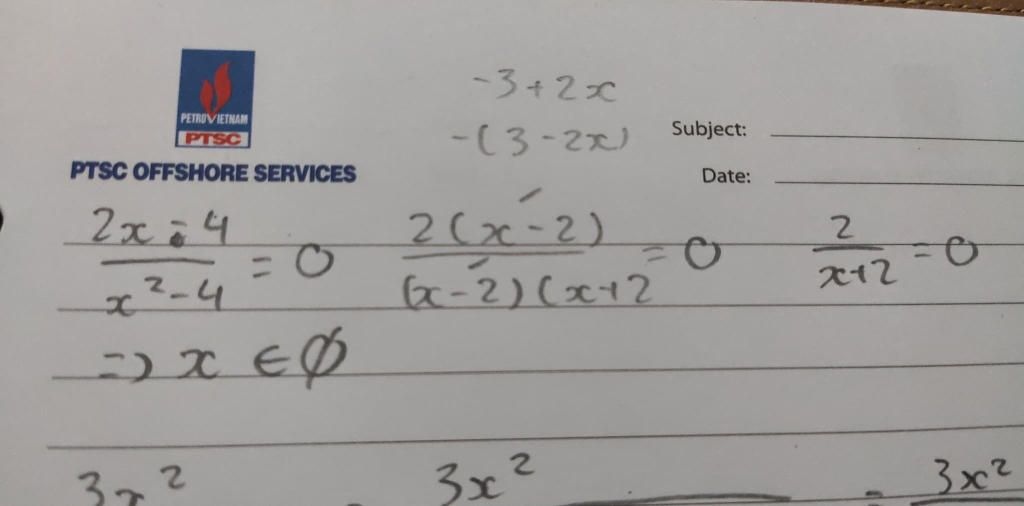 PETROVIETNAM
PTSC
PTSC OFFSHORE SERVICES
-3+2x
-(3-2x)
Subject:
Date:
(2x-4)/(x²-4) = 0
2(x-2)/(x-2)(x+2 = 0
2/(x+2) = 0
=> x ∈ ∅
3x²
3x²
= 3x²